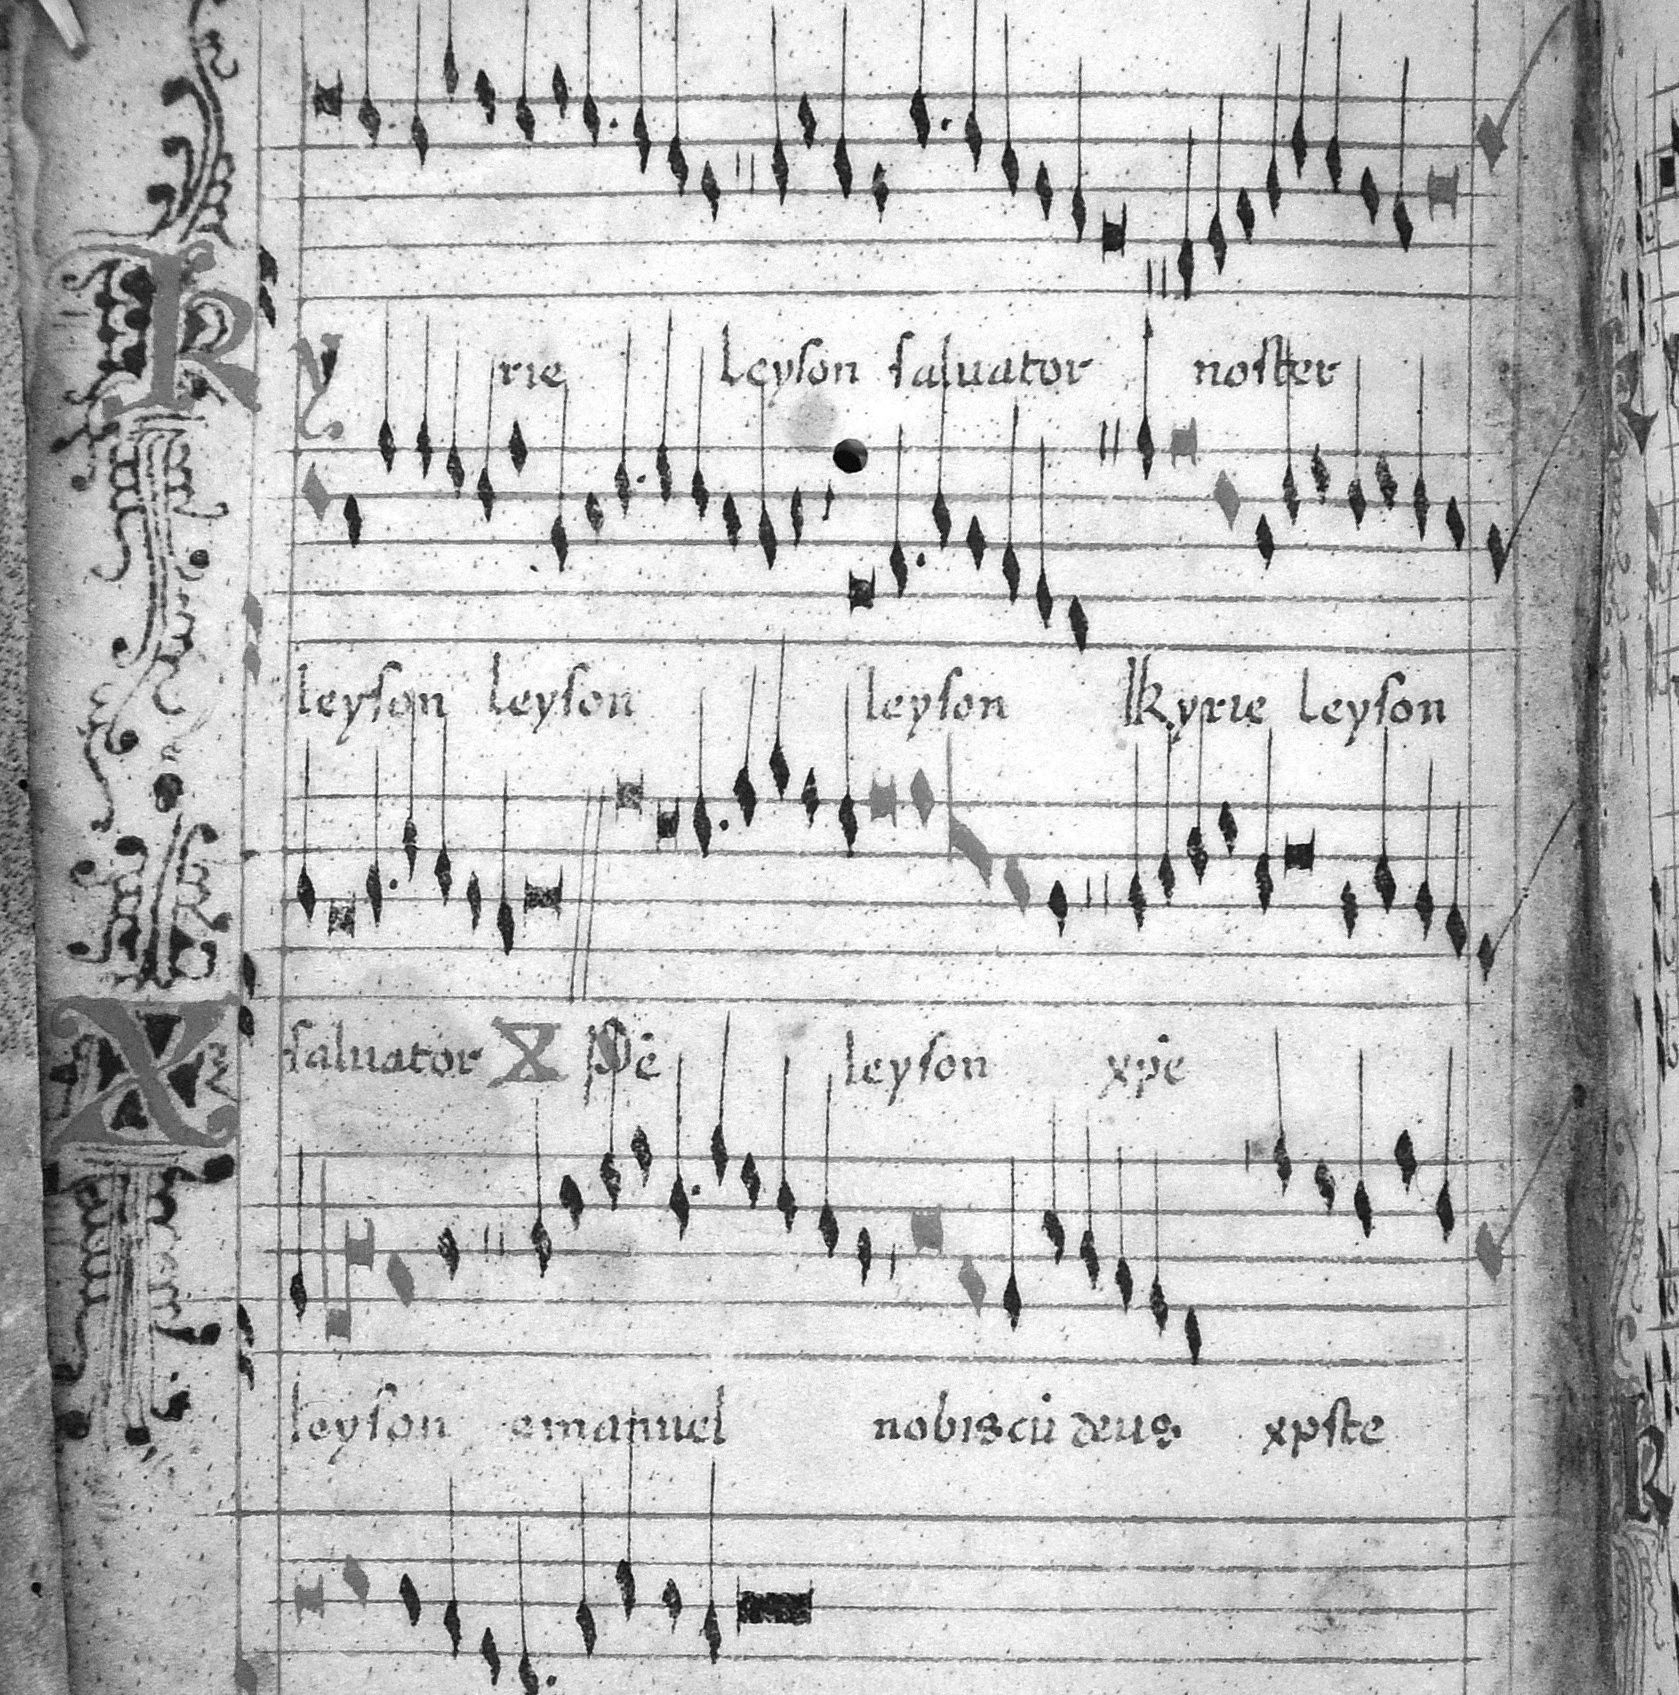 Ky rie leyson saluator noster
leyson leyson leyson Kyrie leyson
saluator Xpe leyson xpe
leyson emanuel nobiscū deus xpste